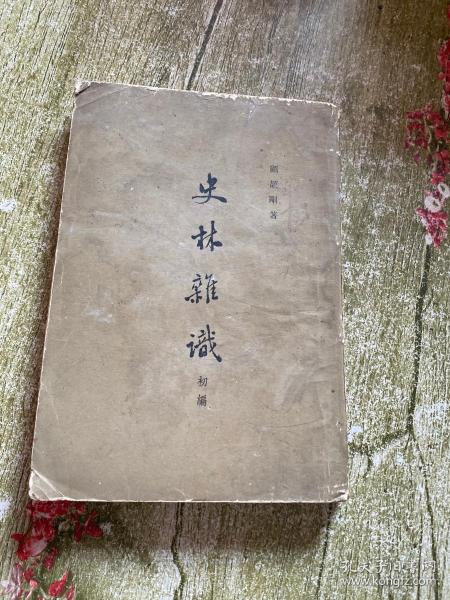 顧頡剛著
史林雜識
初編
孔夫子旧书网
www.kongfz.com